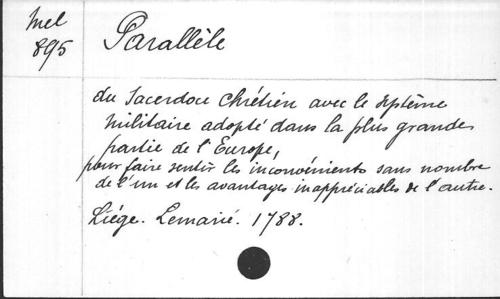 Mel
895
Parallèle
du Sacerdoce Chrétien avec le système
militaire adopté dans la plus grande
partie de l'Europe,
pour faire sentir les inconvénients sans nombre
de l'un et les avantages inappréciables de l'autre.
Liége. Lemarié. 1788.